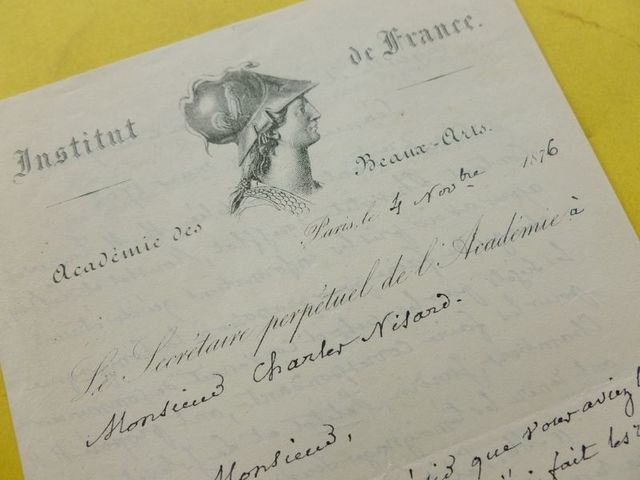 Institut de France.
Académie des Beaux-Arts.
Paris, le 4 Novbre 1876
Le Secrétaire perpétuel de l'Académie à
Monsieur Charles Nisard.
Monsieur,
que vous aviez
fait les